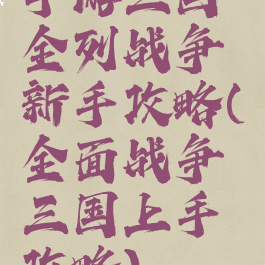 手游三国
全列战争
新手攻略(
全面战争
三国上手
攻略)